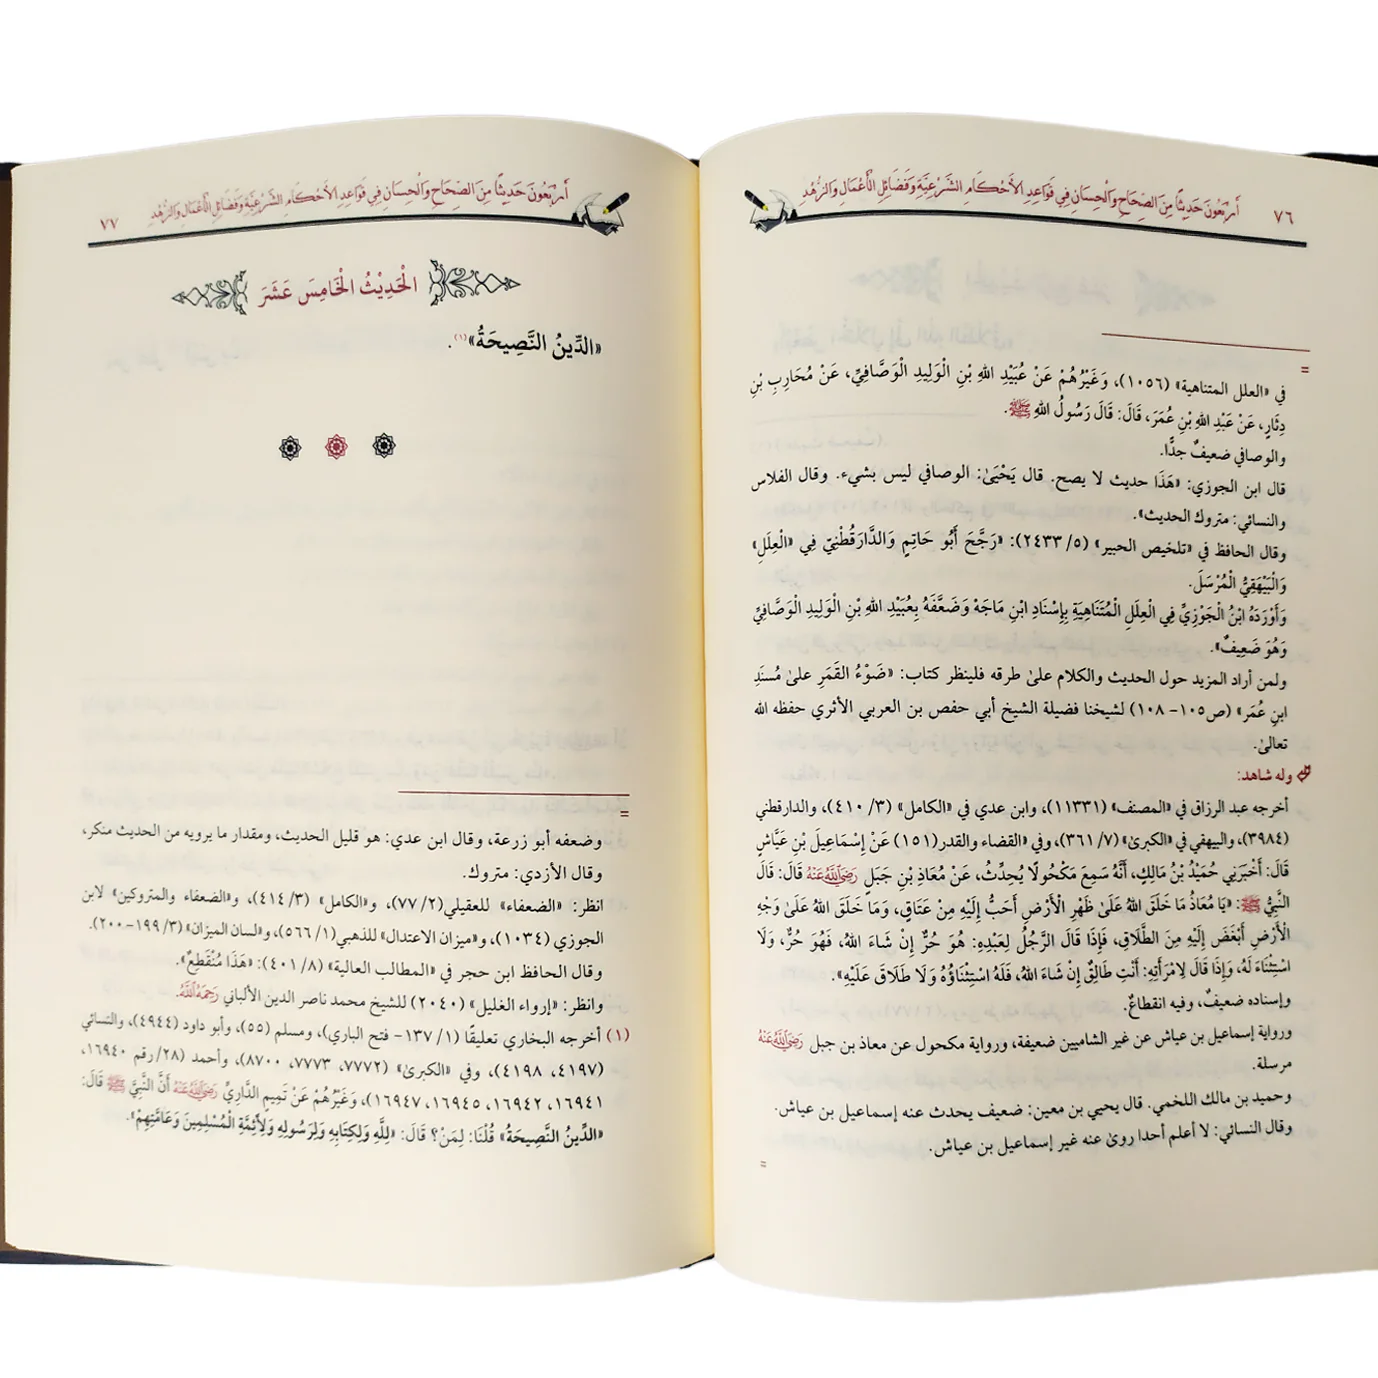 ٧٦ أَرْبَعُونَ حَدِيثًا مِنَ الصِّحَاحِ وَالْحِسَانِ فِي قَوَاعِدِ الأَحْكَامِ الشَّرْعِيَّةِ وَفَضَائِلِ الْأَعْمَالِ وَالزُّهْدِ
=
في «العلل المتناهية» (١٠٥٦)، وَغَيْرُهُمْ عَنْ عُبَيْدِ اللهِ بْنِ الْوَلِيدِ الْوَصَّافِيِّ، عَنْ مُحَارِبِ بْنِ
دِثَارٍ، عَنْ عَبْدِ اللهِ بْنِ عُمَرَ، قَالَ: قَالَ رَسُولُ اللهِ ﷺ.
والوصافي ضعيفٌ جدًّا.
قال ابن الجوزي: «هَذَا حديث لا يصح. قال يَحْيَىٰ: الوصافي ليس بشيء. وقال الفلاس
والنسائي: متروك الحديث».
وقال الحافظ في «تلخيص الحبير» (٥/ ٢٤٣٣): «رَجَّحَ أَبُو حَاتِمٍ وَالدَّارَقُطْنِيّ فِي «الْعِلَلِ»
وَالْبَيْهَقِيُّ الْمُرْسَلَ.
وَأَوْرَدَهُ ابْنُ الْجَوْزِيِّ فِي الْعِلَلِ الْمُتَنَاهِيَةِ بِإِسْنَادِ ابْنِ مَاجَهْ وَضَعَّفَهُ بِعُبَيْدِ اللهِ بْنِ الْوَلِيدِ الْوَصَّافِيِّ
وَهُوَ ضَعِيفٌ».
ولمن أراد المزيد حول الحديث والكلام علىٰ طرقه فلينظر كتاب: «ضَوْءُ القَمَرِ علىٰ مُسْنَدِ
ابنِ عُمَر» (ص١٠٥- ١٠٨) لشيخنا فضيلة الشيخ أبي حفص بن العربي الأثري حفظه الله
تعالىٰ.
وله شاهد:
أخرجه عبد الرزاق في «المصنف» (١١٣٣١)، وابن عدي في «الكامل» (٣/ ٤١٠)، والدارقطني
(٣٩٨٤)، والبيهقي في «الكبرىٰ» (٧/ ٣٦١)، وفي «القضاء والقدر(١٥١) عَنْ إِسْمَاعِيلَ بْنِ عَيَّاشٍ
قَالَ: أَخْبَرَنِي حُمَيْدُ بْنُ مَالِكٍ، أَنَّهُ سَمِعَ مَكْحُولًا يُحِدِّثُ، عَنْ مُعَاذِ بْنِ جَبَلٍ رَضِيَ اللَّهُ عَنْهُ قَالَ: قَالَ
النَّبِيُّ ﷺ: «يَا مُعَاذُ مَا خَلَقَ اللهُ عَلَىٰ ظَهْرِ الْأَرْضِ أَحَبُّ إِلَيْهِ مِنْ عَتَاقٍ، وَمَا خَلَقَ اللهُ عَلَىٰ وَجْهِ
الْأَرْضِ أَبْغَضَ إِلَيْهِ مِنَ الطَّلَاقِ، فَإِذَا قَالَ الرَّجُلُ لِعَبْدِهِ: هُوَ حُرٌّ إِنْ شَاءَ اللهُ، فَهُوَ حُرٌّ، وَلَا
اسْتِثْنَاءَ لَهُ، وَإِذَا قَالَ لِامْرَأَتِهِ: أَنْتِ طَالِقٌ إِنْ شَاءَ اللهُ، فَلَهُ اسْتِثْنَاؤُهُ وَلَا طَلَاقَ عَلَيْهِ».
وإسناده ضعيفٌ، وفيه انقطاعٌ.
ورواية إسماعيل بن عياش عن غير الشاميين ضعيفة، ورواية مكحول عن معاذ بن جبل رَضِيَ اللَّهُ عَنْهُ
مرسلة.
وحميد بن مالك اللخمي. قال يحيي بن معين: ضعيف يحدث عنه إسماعيل بن عياش.
وقال النسائي: لا أعلم أحدا روىٰ عنه غير إسماعيل بن عياش.
=
أَرْبَعُونَ حَدِيثًا مِنَ الصِّحَاحِ وَالْحِسَانِ فِي قَوَاعِدِ الأَحْكَامِ الشَّرْعِيَّةِ وَفَضَائِلِ الْأَعْمَالِ وَالزُّهْدِ ٧٧
الْحَدِيْثُ الْخَامِسَ عَشَرَ
«الدِّينُ النَّصِيحَةُ»(١).
=
وضعفه أبو زرعة، وقال ابن عدي: هو قليل الحديث، ومقدار ما يرويه من الحديث منكر،
وقال الأزدي: متروك.
انظر: «الضعفاء» للعقيلي(٢/ ٧٧)، و«الكامل» (٣/ ٤١٤)، و«الضعفاء والمتروكين» لابن
الجوزي (١٠٣٤)، و«ميزان الاعتدال» للذهبي(١/ ٥٦٦)، و«لسان الميزان» (٣/ ١٩٩-٢٠٠).
وقال الحافظ ابن حجر في «المطالب العالية» (٨/ ٤٠١): «هَذَا مُنْقَطِعٌ».
وانظر: «إرواء الغليل» (٢٠٤٠) للشيخ محمد ناصر الدين الألباني رَحِمَهُ اللَّهُ.
(١) أخرجه البخاري تعليقًا (١/ ١٣٧- فتح الباري)، ومسلم (٥٥)، وأبو داود (٤٩٤٤)، والنسائي
(٤١٩٧، ٤١٩٨)، وفي «الكبرىٰ» (٧٧٧٢، ٧٧٧٣، ٨٧٠٠)، وأحمد (٢٨/ رقم ١٦٩٤٠،
١٦٩٤١، ١٦٩٤٢، ١٦٩٤٥، ١٦٩٤٧)، وَغَيْرُهُمْ عَنْ تَمِيمٍ الدَّارِيِّ رَضِيَ اللَّهُ عَنْهُ أَنَّ النَّبِيَّ ﷺ قَالَ:
«الدِّينُ النَّصِيحَةُ» قُلْنَا: لِمَنْ؟ قَالَ: «لِلَّهِ وَلِكِتَابِهِ وَلِرَسُولِهِ وَلِأَئِمَّةِ الْمُسْلِمِينَ وَعَامَّتِهِمْ».